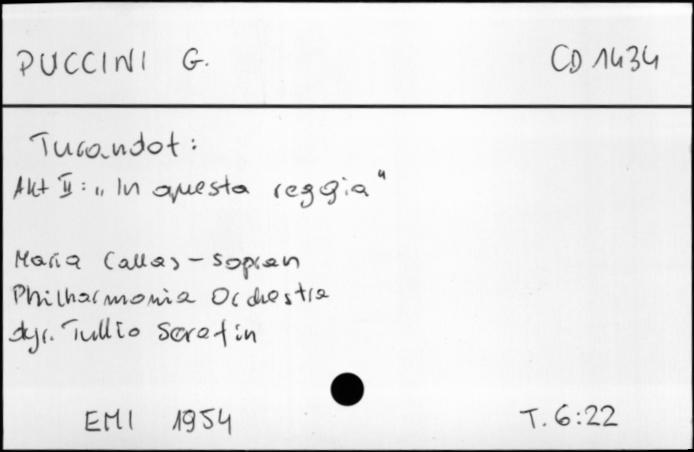 PUCCINI G. CD 1434
Turandot:
Akt II: „In questa reggia"
Maria Callas - sopran
Philharmonia Orchestra
dyr. Tullio Serafin
EMI 1954 T. 6:22